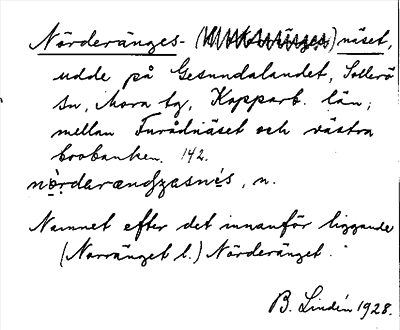 Nörderänges- ( ) näset,
udde på Gesundalandet, Sollerö
sn, Mora tg, Kopparb. län;
mellan Furudnäset och västra
brobanken. 142.
nò̤rdarændzasnés, n.
Namnet efter det innanför liggande
(Norränget l.) Nörderänget.
B. Lindén 1928.